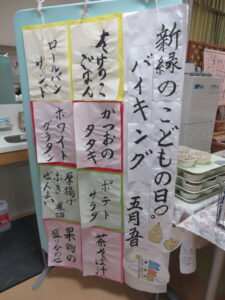 新緑のこどもの日。
バイキング 五月五日
たけのこ
ごはん
かつおの
タタキ
ポテト
サラダ
茶そば汁
ロールパン
サンド
ホワイト
グラタン
厚揚げ
ふき 煮物
ぜんまい
果物の
盛り合わせ